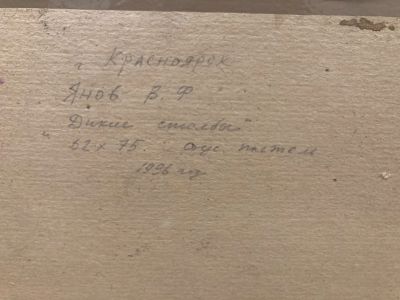 г Красноярск
Янов В. Ф
"Дикие столбы"
62 х 75. соус. пастель
1996 год